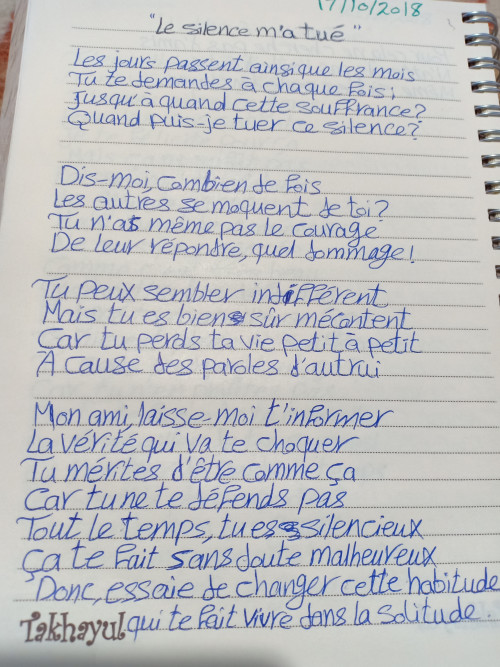 17/10/2018
"Le silence m'a tué"
Les jours passent ainsi que les mois
Tu te demandes à chaque fois :
Jusqu'à quand cette souffrance?
Quand puis-je tuer ce silence?
Dis-moi, combien de fois
Les autres se moquent de toi?
Tu n'as même pas le courage
De leur répondre, quel dommage!
Tu peux sembler indifférent
Mais tu es bien sûr mécontent
Car tu perds ta vie petit à petit
À cause des paroles d'autrui
Mon ami, laisse-moi t'informer
La vérité qui va te choquer
Tu mérites d'être comme ça
Car tu ne te défends pas
Tout le temps, tu es silencieux
Ça te fait sans doute malheureux
Donc, essaie de changer cette habitude
qui te fait vivre dans la solitude.
Takhayul